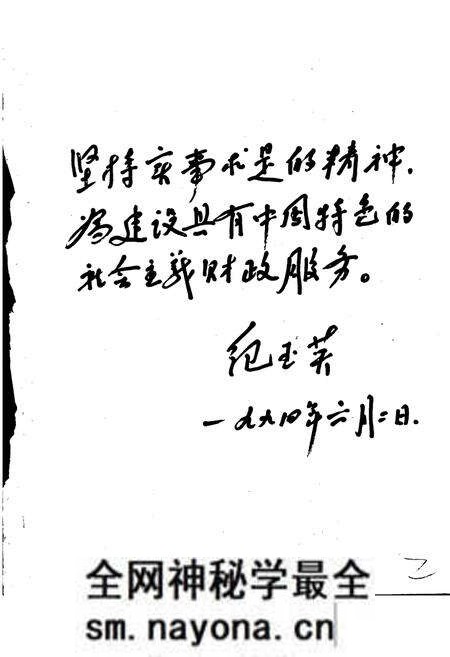 坚持实事求是的精神,
为建设具有中国特色的
社会主义财政服务。
纪玉英
一九九四年六月二日.
二
全网神秘学最全
sm.nayona.cn